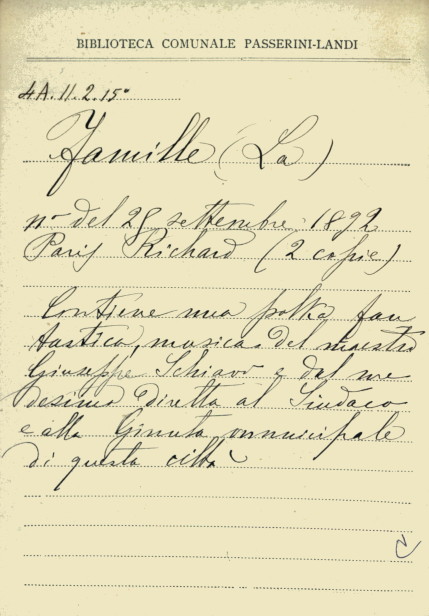 BIBLIOTECA COMUNALE PASSERINI-LANDI
4A.11.2.15°
Famille (La)
nº del 25 settembre 1892
Paris Richard (2 copie)
Contiene una polka fan
tastica, musica del maestro
Giuseppe Schiavo e dal me
desimo diretta al Sindaco
e alla Giunta municipale
di questa città